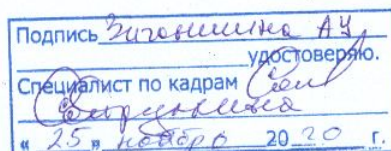 Подпись Зиганшина АУ
удостоверяю.
Специалист по кадрам
« 25 » ноября 20 20 г.